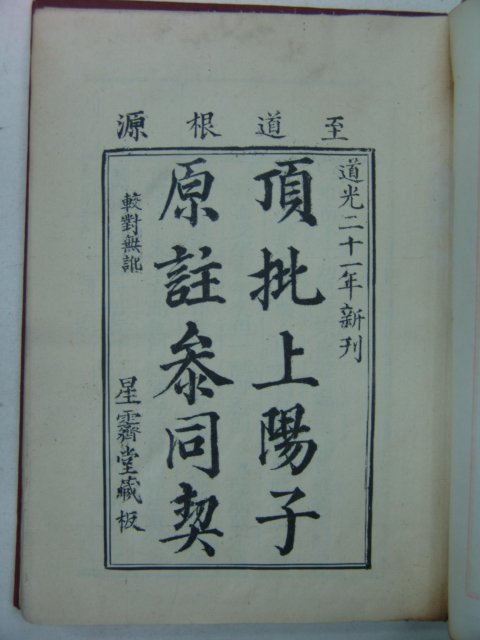 至道根源
道光二十一年新刊
頂批上陽子
原註叅同契
較對無訛
星齋堂藏板